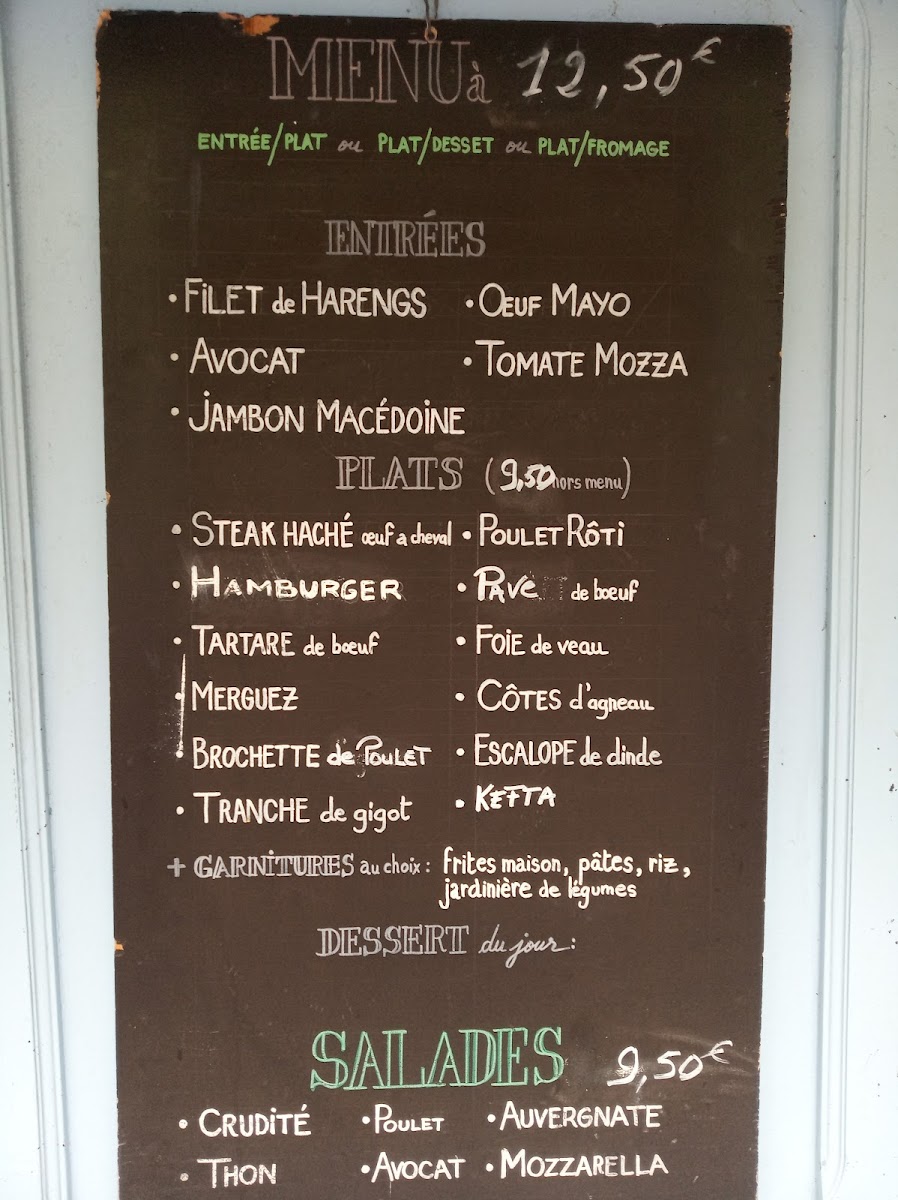 MENU à 12,50€
ENTRÉE/PLAT ou PLAT/DESSET ou PLAT/FROMAGE
ENTRÉES
• FILET de HARENGS • OEUF MAYO
• AVOCAT • TOMATE MOZZA
• JAMBON MACÉDOINE
PLATS (9,50 hors menu)
• STEAK HACHÉ œuf a cheval • POULET RÔTI
• HAMBURGER • PAVE de bœuf
• TARTARE de bœuf • FOIE de veau
• MERGUEZ • CÔTES d'agneau
• BROCHETTE de POULET • ESCALOPE de dinde
• TRANCHE de gigot • KEFTA
+ GARNITURES au choix : frites maison, pâtes, riz,
jardinière de légumes
DESSERT du jour :
SALADES 9,50€
• CRUDITÉ • POULET • AUVERGNATE
• THON • AVOCAT • MOZZARELLA